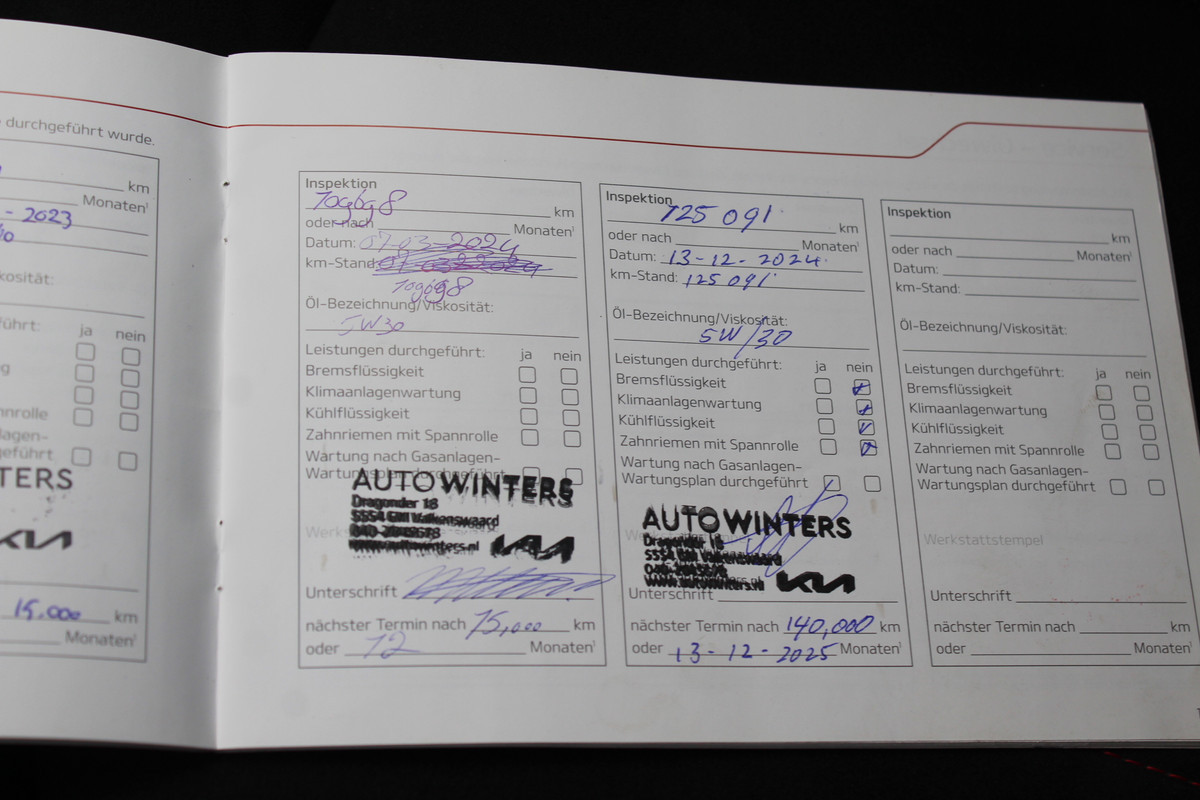 durchgeführt wurde.
km
Monaten¹
- 2023
ja nein
nnrolle
lagen-
geführt
TERS
KIA
15.000 km
Monaten¹
Inspektion
109698 km
oder nach Monaten¹
Datum: 07-03-2024
km-Stand:
109698
Öl-Bezeichnung/Viskosität:
5W30
Leistungen durchgeführt: ja nein
Bremsflüssigkeit
Klimaanlagenwartung
Kühlflüssigkeit
Zahnriemen mit Spannrolle
Wartung nach Gasanlagen-
Wartungsplan durchgeführt
AUTO WINTERS
Dragonder 18
5554 GM Valkenswaard
www.autowinters.nl
KIA
Unterschrift
nächster Termin nach 15,000 km
oder 12 Monaten¹
Inspektion
125 091 km
oder nach Monaten¹
Datum: 13-12-2024
km-Stand: 125 091
Öl-Bezeichnung/Viskosität:
5W/30
Leistungen durchgeführt: ja nein
Bremsflüssigkeit
Klimaanlagenwartung
Kühlflüssigkeit
Zahnriemen mit Spannrolle
Wartung nach Gasanlagen-
Wartungsplan durchgeführt
AUTO WINTERS
Dragonder 18
5554 GM Valkenswaard
www.autowinters.nl
KIA
Unterschrift
nächster Termin nach 140,000 km
oder 13-12-2025 Monaten¹
Inspektion
km
oder nach Monaten¹
Datum:
km-Stand:
Öl-Bezeichnung/Viskosität:
Leistungen durchgeführt: ja nein
Bremsflüssigkeit
Klimaanlagenwartung
Kühlflüssigkeit
Zahnriemen mit Spannrolle
Wartung nach Gasanlagen-
Wartungsplan durchgeführt
Werkstattstempel
Unterschrift
nächster Termin nach km
oder Monaten¹